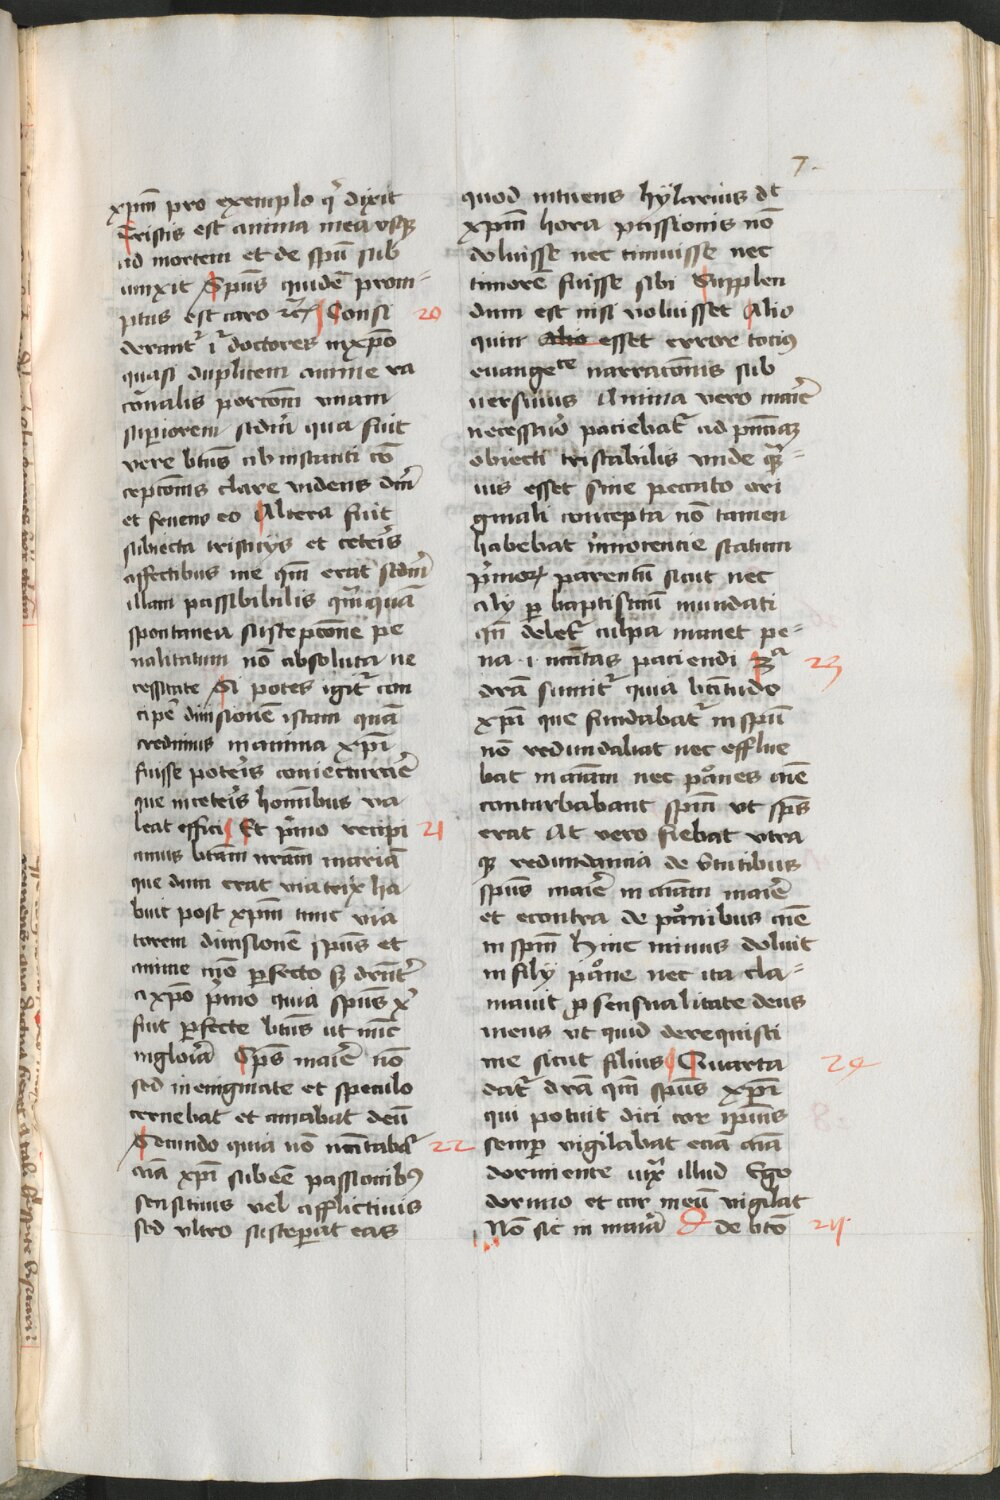 7.
xpm̄ pro exemplo q̇ dixit
Tristis est anima mea usqꝫ
ad mortem et de spū sub
iunxit Spūs quidē prom=
ptus est caro ⁊c̄ Consi 20
derant᷑ i᷑ doctores in xp̄o
quasi duplicem anime ra
cōnalis porcōm unam
supiorem scdm̄ qua fuit
vere btūs ab instanti cō
cepcōnis clare videns dm̄
et fruens eo Altera fuit
subiecta tristicijs et ceteris
affectibus me qm̄ erat scdm̄
illam passibibilis qm̄quā
spontanea suscepcōne pe
nalitatum nō absoluta ne
cessitate Si potes igit᷑ con
cipe᷑ diuisionē istam quā
credimus in anima xp̄i
fuisse poteris coniecturare᷑
que in ceteris hominibus va
leat effici Et p̄mo recipi 21
amus btām nrām mariā
que dum erat viatrix ha
buit post xpm̄ tunc via
torem diuisionē spūs et
anime mō perfecto sꝫ drn̄t᷑
a xp̄o p̄mo quia spūs x᷑
fuit perfecte btūs ut nūc
in gloria Spūs mar̄ie nō
sed in enigmate et speculo
cernebat et amabat deū
Secundo quia nō nctābat᷑ 22
aīa xp̄i subeē passionibꝯ
sensitiuis vel afflictiuis
sed vltro susceperat eas
quod intuens hylarius dt
xpm̄ hora passionis nō
doluisse nec timuisse nec
timorē fuisse sibi Supplen
dum est nisi voluisset Alio
quin esset errore tociꝰ
euangece narracōnis sub
uersiuus Anima vero marie᷑
necessario paciebat᷑ ad pn̄ciaꝫ
obiecti tristabilis unde qm̄=
uis esset sine peccato ori
ginali concepta nō tamen
habebat innocencie statum
p̄moꝝ parentū sicut nec
alij per baptismū mundati
qn̄ delet᷑ culpa manet pe=
na .i. nc̄itas paciendi 3a 23
drām sumit᷑ quia btitudo
xp̄i que fundabat᷑ in spū
nō redundabat nec efflue
bat in aīam nec pōnes aīe
conturbabant spm̄ vt spūs
erat At vero fiebat vtra
qꝫ redundancia de v̄tutibus
spūs mar̄ie in aīam mar̄ie
et econtra de pōnibus aīe
in spm̄ Hinc minus doluit
in filij pōne nec ita cla=
mauit p sensualitate deus
meus vt quid derequisti
me sicut filius Quarta 24
dat᷑ drā qm̄ spūs xp̄i
qui potuit dici cor ipius
semp vigilabat eciā aīa
dormiente iux᷑ illud Ego
dormio et cor meū vigilat
Nō sic in maria de btō 25